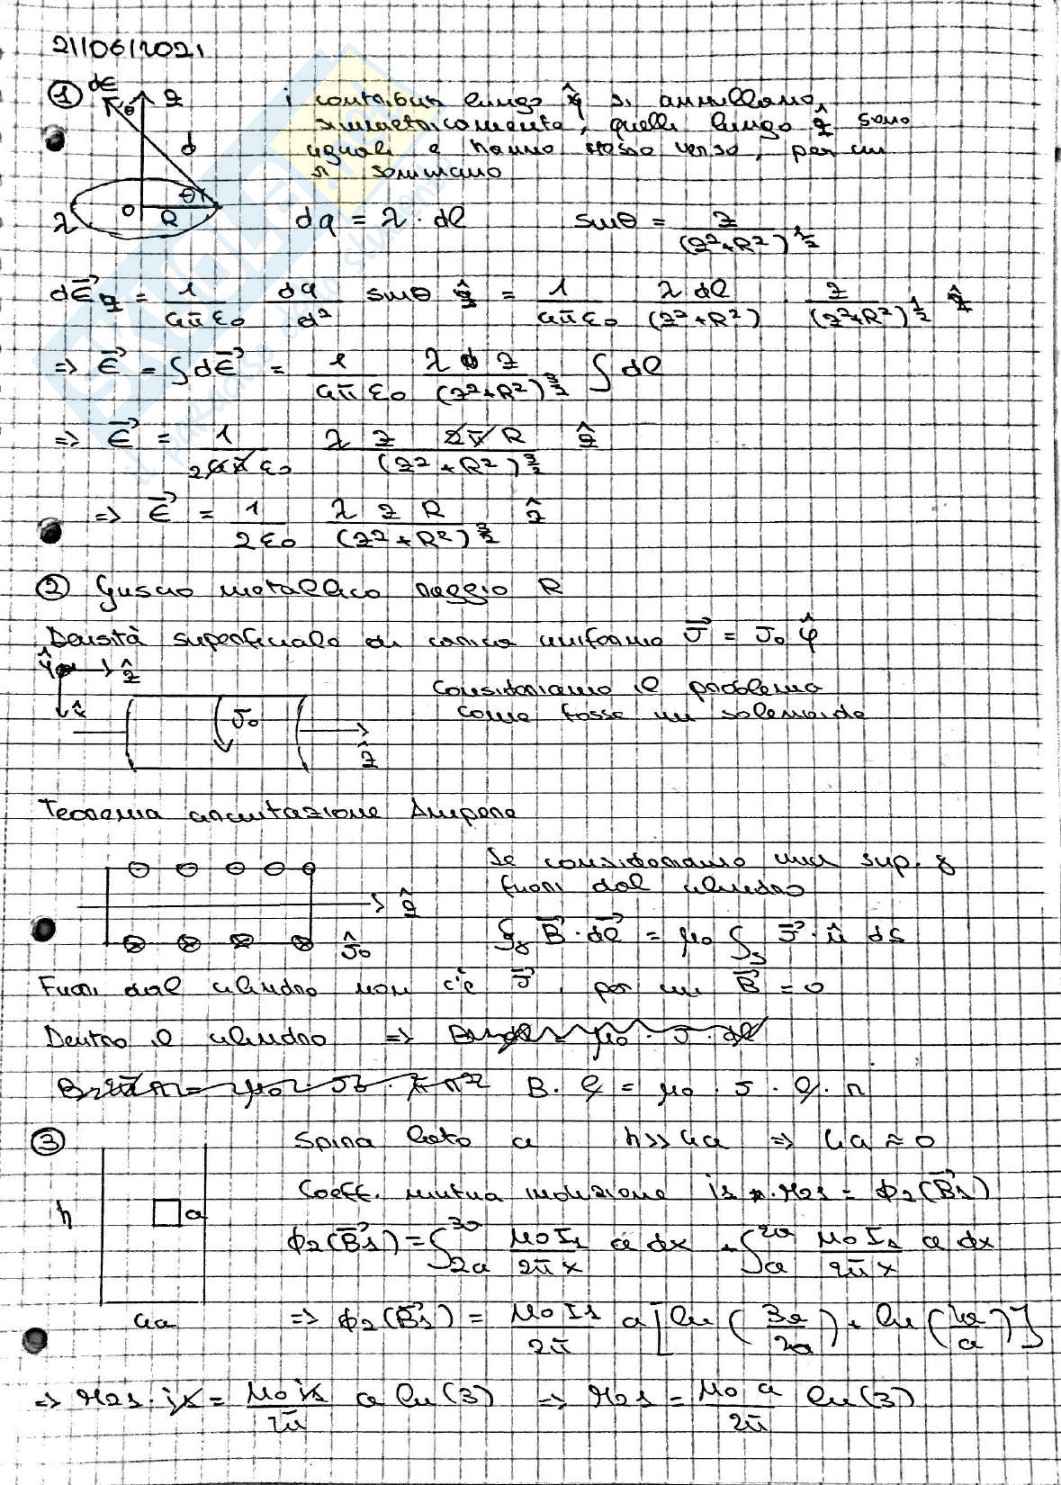 21/06/2021
① dE θ z i contributi lungo ŷ si annullano
simmetricamente, quelli lungo ẑ sono
d uguali e hanno stesso verso, per cui
si sommano
θ O R λ dq = λ · dl sinθ = z/(z²+R²)^½
dE⃗z = 1/4πε₀ dq/d² sinθ ẑ = 1/4πε₀ λ dl/(z²+R²) z/(z²+R²)^½ ẑ
=> E⃗ = ∫dE⃗ = 1/4πε₀ λ z/(z²+R²)^3/2 ∫dl
=> E⃗ = 1/4πε₀ λ z 2πR/(z²+R²)^3/2 ẑ
=> E⃗ = 1/2ε₀ λ z R/(z²+R²)^3/2 ẑ
② Guscio metallico raggio R
Densità superficiale di carica uniforme J⃗ = J₀ φ̂
φ̂ ẑ
r̂ J₀ ẑ Consideriamo il problema
come fosse un solenoide
Teorema circuitazione Ampere
Se consideriamo una sup. γ
ẑ fuori dal cilindro
Ĵ₀ ∮γ B⃗ · dl⃗ = μ₀ ∫s J⃗ · û ds
Fuori dal cilindro non c'è J⃗, per cui B⃗ = 0
Dentro il cilindro =>
B · l = μ₀ · J · l · n
③ Spira lato a h>>4a => 4a ≈ 0
h a Coeff. mutua induzione i₁ · M₂₁ = ϕ₂(B⃗₁)
ϕ₂(B⃗₁) = ∫2a^3a μ₀I₁/2πx a dx + ∫a^2a μ₀I₁/2πx a dx
4a => ϕ₂(B⃗₁) = μ₀I₁/2π a [ln(3a/2a) + ln(2a/a)]
=> M₂₁ · i₁ = μ₀i₁/2π a ln(3) => M₂₁ = μ₀a/2π ln(3)